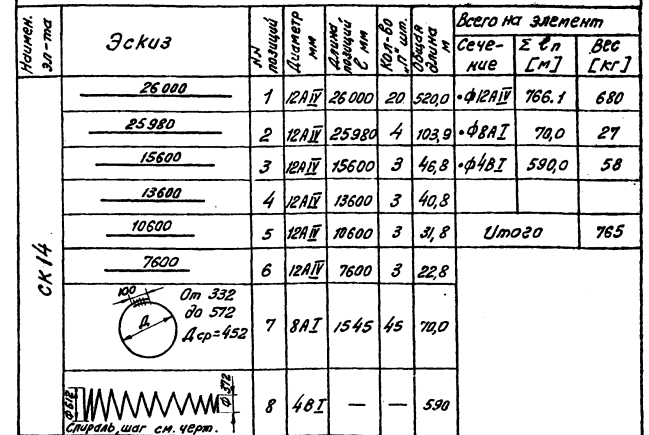 Наимен. эл-та | Эскиз | NN позиций | Диаметр мм | Длина позиций ℓ мм | Кол-во "n" шт. | Общая длина м | Всего на элемент
Сече-ние | Σ ℓn [м] | Вес [кг]
СК 14
26000 | 1 | 12АIV | 26000 | 20 | 520,0 | •Ф12АIV | 766.1 | 680
25980 | 2 | 12АIV | 25980 | 4 | 103,9 | •Ф8АI | 70,0 | 27
15600 | 3 | 12АIV | 15600 | 3 | 46,8 | •Ф4ВI | 590,0 | 58
13600 | 4 | 12АIV | 13600 | 3 | 40,8
10600 | 5 | 12АIV | 10600 | 3 | 31,8 | Итого | 765
7600 | 6 | 12АIV | 7600 | 3 | 22,8
100 Д От 332
до 572
Дср=452 | 7 | 8АI | 1545 | 45 | 70,0
Ф612 Ф372 | 8 | 4ВI | — | — | 590
Спираль, шаг см. черт.